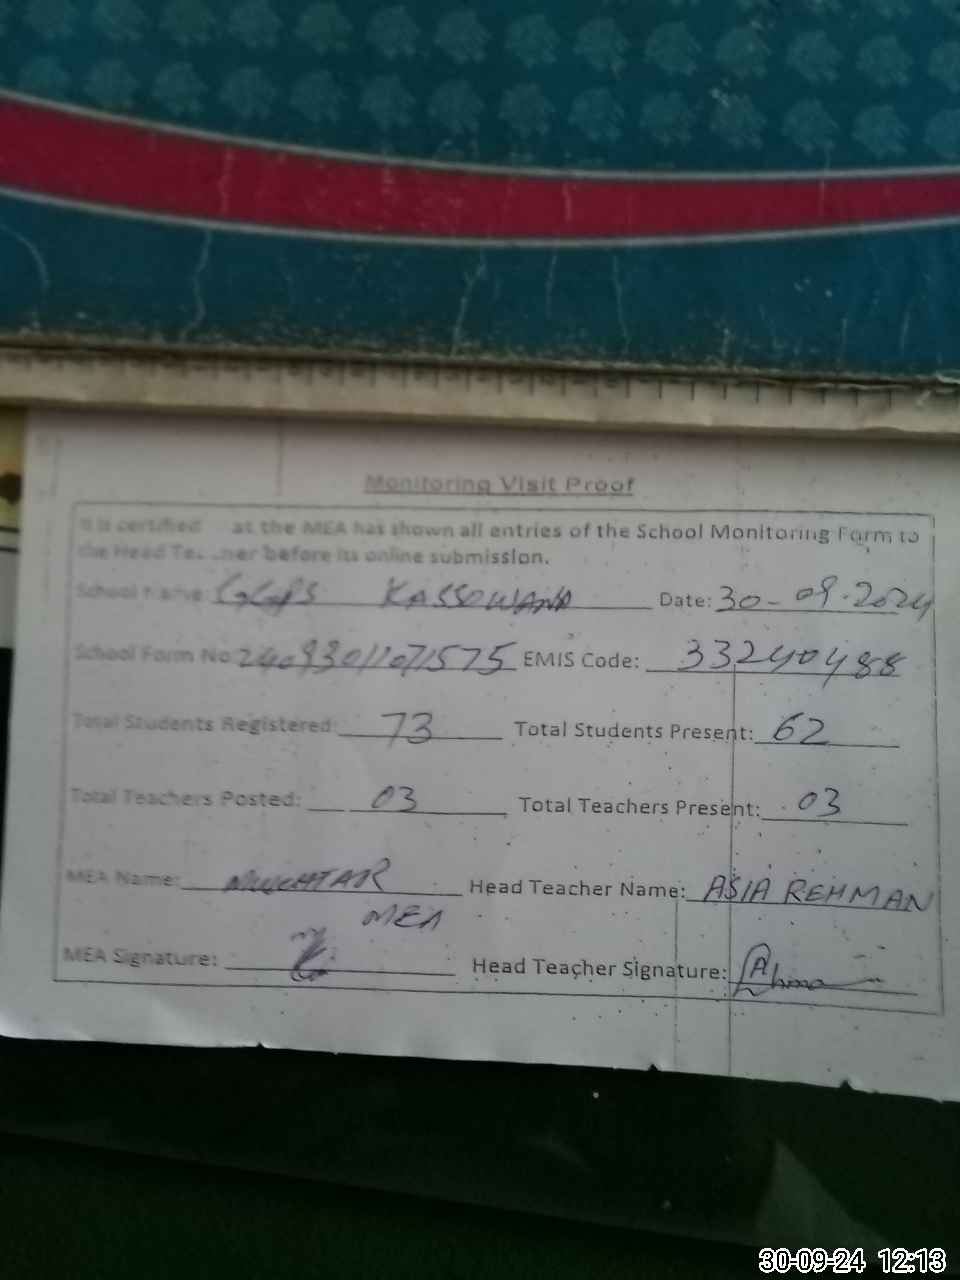 Monitoring Visit Proof
It is certified at the MEA has shown all entries of the School Monitoring Form to
the Head Te ner before its online submission.
School Name: GGPS KASSOWANA Date: 30-09-2024
School Form No: EMIS Code: 33240488
Total Students Registered: 73 Total Students Present: 62
Total Teachers Posted: 03 Total Teachers Present: 03
MEA Name: MUKHTAR Head Teacher Name: ASIA REHMAN
MEA
MEA Signature: Head Teacher Signature:
30-09-24 12:13